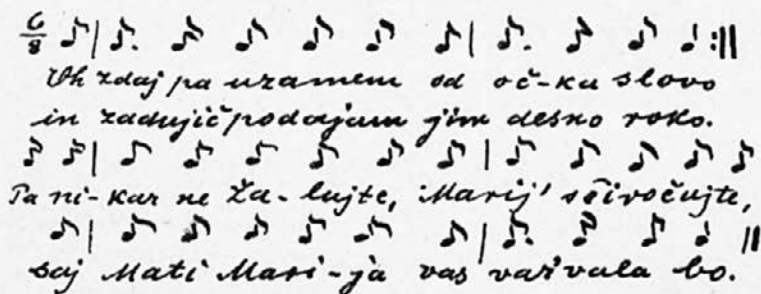 6/8
Oh zdaj pa uzamem od oč-ka slovo
in zadnjič podajam jim desno roko.
Pa ni-kar ne ža-lujte, Marij' s' izročujte,
saj Mati Mari-ja vas var'vala bo.